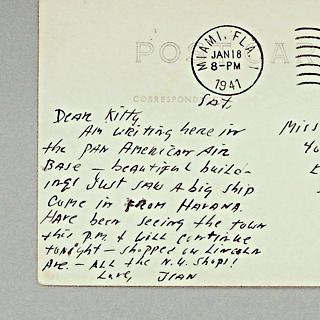 POST CAR
MIAMI, FLA. 1
JAN 18
8-PM
1941
CORRESPONDE
Sat.
Dear Kitty
Am writing here in
the PAN AMERICAN AIR
BASE — beautiful build-
ing! Just saw a big ship
come in FROM HAVANA.
Have been seeing the town
this P.M. & will continue
tonight — shopped on LINCOLN
Ave. — ALL the N.Y. Shops!
Love, JEAN
Miss